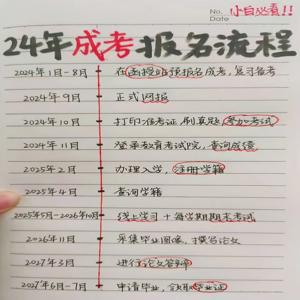 No.
Date
小白必看!!
24年成考报名流程
2024年1月-8月 在函授站预报名成考,复习备考
2024年9月 正式网报
2024年10月 打印准考证,刷真题,参加考试
2024年11月 登录教育考试院,查询成绩
2025年2月 办理入学,注册学籍
2025年4月 查询学籍
2025年5月-2026年10月 线上学习+每学期期末考试
2026年11月 采集毕业图像,撰写论文
2027年3月 进行论文答辩
2027年6月-7月 申请毕业,领取毕业证